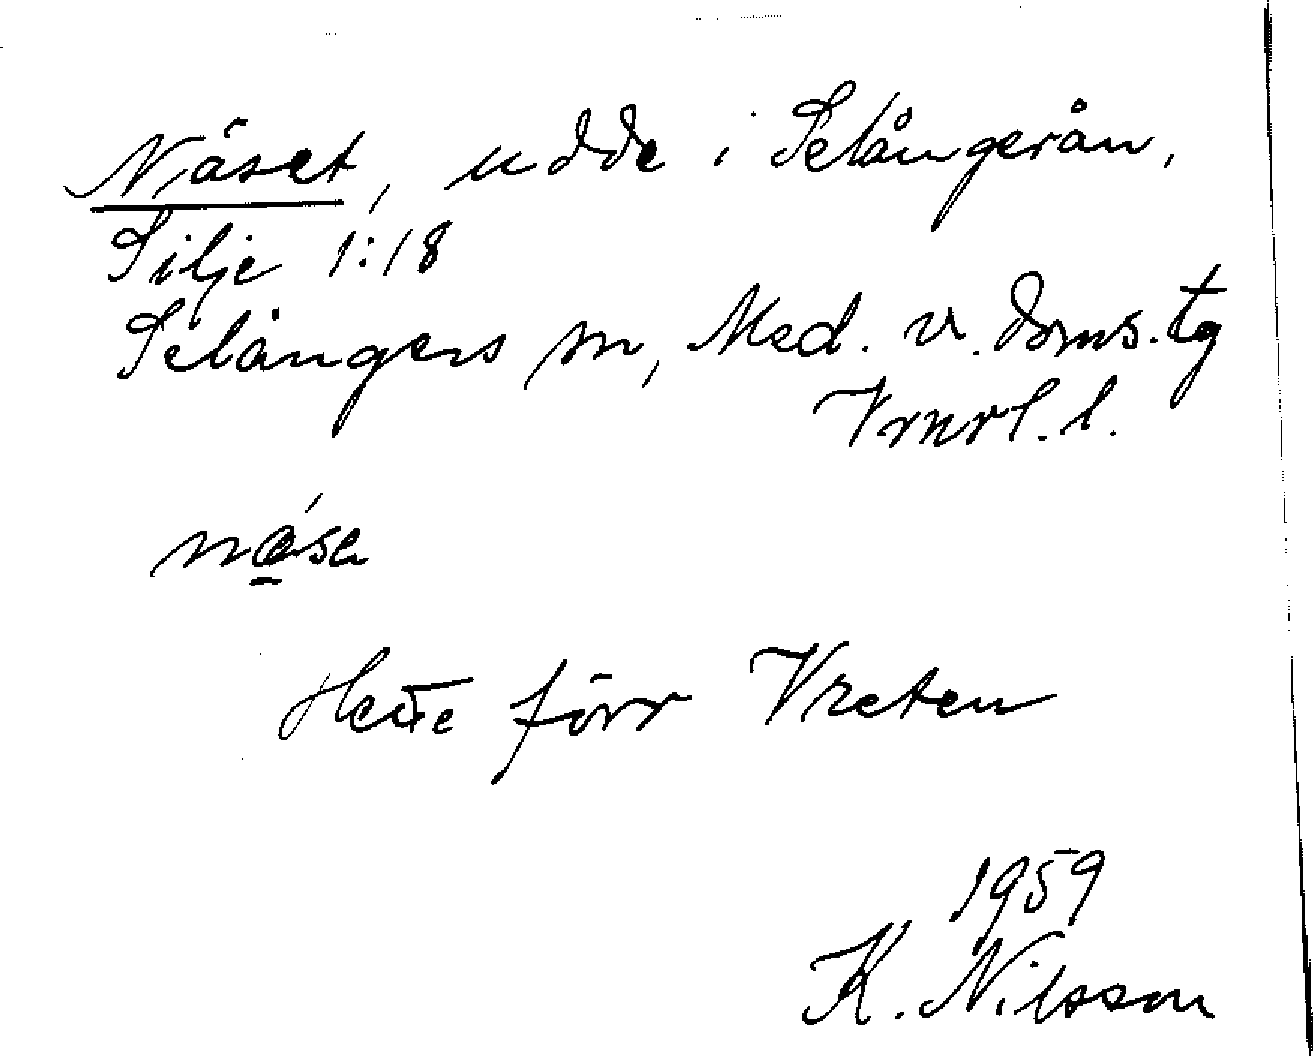 Näset, udde i Selångerån,
Silje 1:18
Selångers sn, Med. v. doms.tg
Vrnrl. l.
nǻse
Hette förr Vreten
1959
K. Nilsson